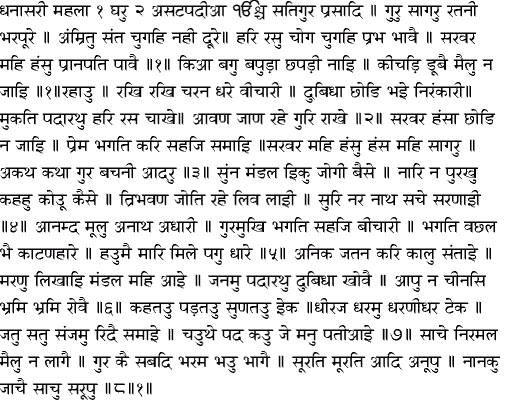 धनासरी महला १ घरु २ असटपदीआ ੴ सतिगुर प्रसादि ॥ गुरु सागरु रतनी
भरपूरे ॥ अम्रितु संत चुगहि नही दूरे॥ हरि रसु चोग चुगहि प्रभ भावै ॥ सरवर
महि हंसु प्रानपति पावै ॥१॥ किआ बगु बपुड़ा छपड़ी नाइ ॥ कीचड़ि डूबै मैलु न
जाइ ॥१॥रहाउ ॥ रखि रखि चरन धरे वीचारी ॥ दुबिधा छोडि भइे निरंकारी॥
मुकति पदारथु हरि रस चाखे॥ आवण जाण रहे गुरि राखे ॥२॥ सरवर हंसा छोडि
न जाइ ॥ प्रेम भगति करि सहजि समाइ ॥सरवर महि हंसु हंस महि सागरु ॥
अकथ कथा गुर बचनी आदरु ॥३॥ सुंन मंडल इिकु जोगी बैसे ॥ नारि न पुरखु
कहहु कोउू कैसे ॥ त्रिभवण जोति रहे लिव लाइी ॥ सुरि नर नाथ सचे सरणाइी
॥४॥ आनम्द मूलु अनाथ अधारी ॥ गुरमुखि भगति सहजि बीचारी ॥ भगति वछल
भै काटणहारे ॥ हउुमै मारि मिले पगु धारे ॥५॥ अनिक जतन करि कालु संताइे ॥
मरणु लिखाइि मंडल महि आइे ॥ जनमु पदारथु दुबिधा खोवै ॥ आपु न चीनसि
भ्रमि भ्रमि रोवै ॥६॥ कहतउु पड़तउु सुणतउु इेक ॥धीरज धरमु धरणीधर टेक ॥
जतु सतु संजमु रिदै समाइे ॥ चउुथे पद कउु जे मनु पतीआइे ॥७॥ साचे निरमल
मैलु न लागै ॥ गुर कै सबदि भरम भउु भागै ॥ सूरति मूरति आदि अनूपु ॥ नानकु
जाचै साचु सरूपु ॥८॥१॥